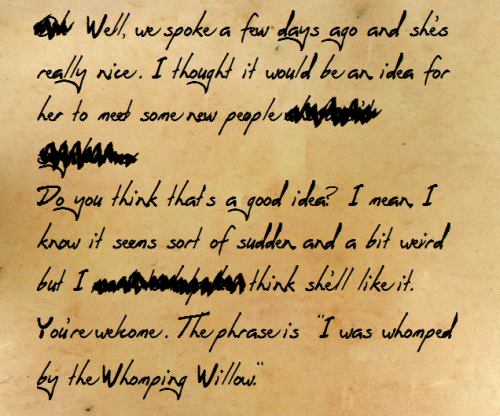 Well, we spoke a few days ago and she's
really nice. I thought it would be an idea for
her to meet some new people
Do you think that's a good idea? I mean, I
know it seems sort of sudden and a bit weird
but I think she'll like it.
You're welcome. The phrase is "I was whomped
by the Whomping Willow."